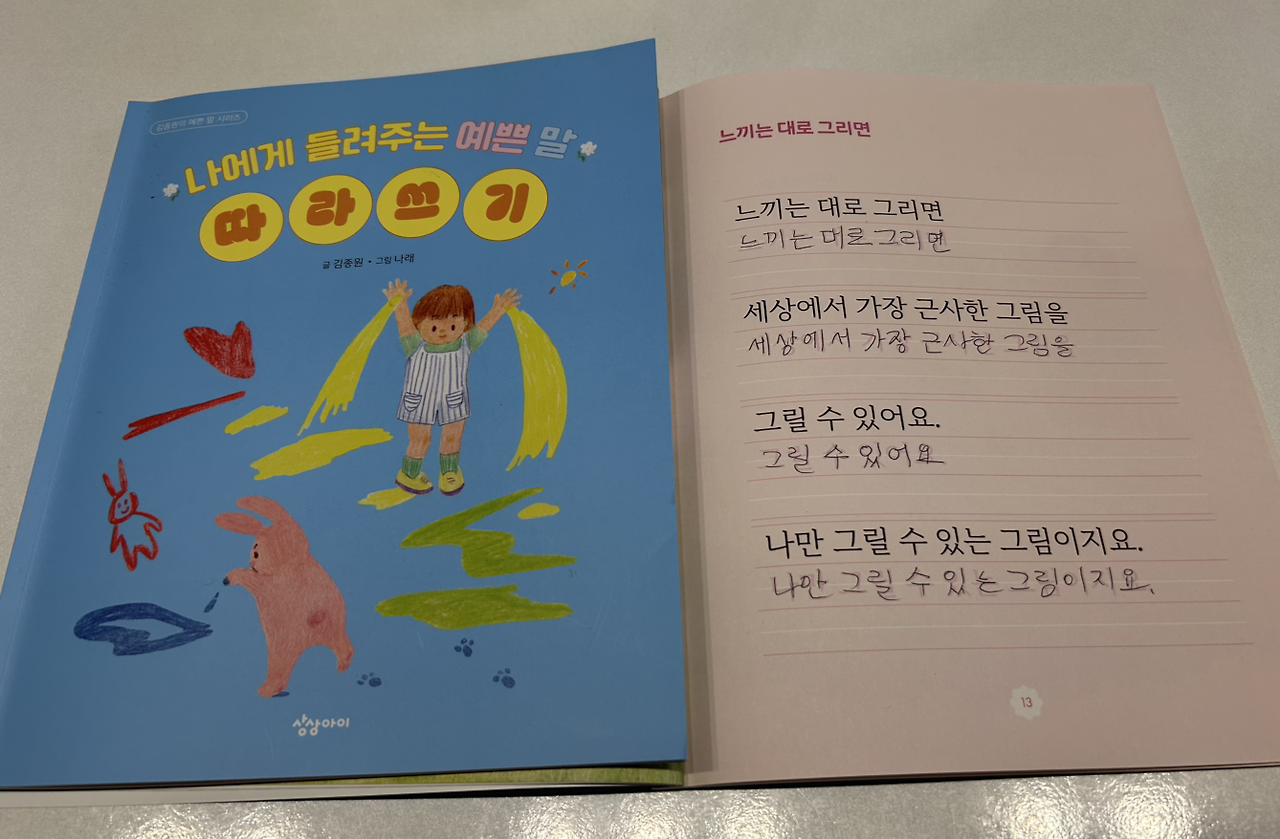 김종원의 예쁜 말 시리즈
나에게 들려주는 예쁜 말
따라쓰기
글 김종원 • 그림 나래
상상아이
느끼는 대로 그리면
느끼는 대로 그리면
느끼는 대로 그리면
세상에서 가장 근사한 그림을
세상에서 가장 근사한 그림을
그릴 수 있어요.
그릴 수 있어요
나만 그릴 수 있는 그림이지요.
나만 그릴 수 있는 그림이지요.
13